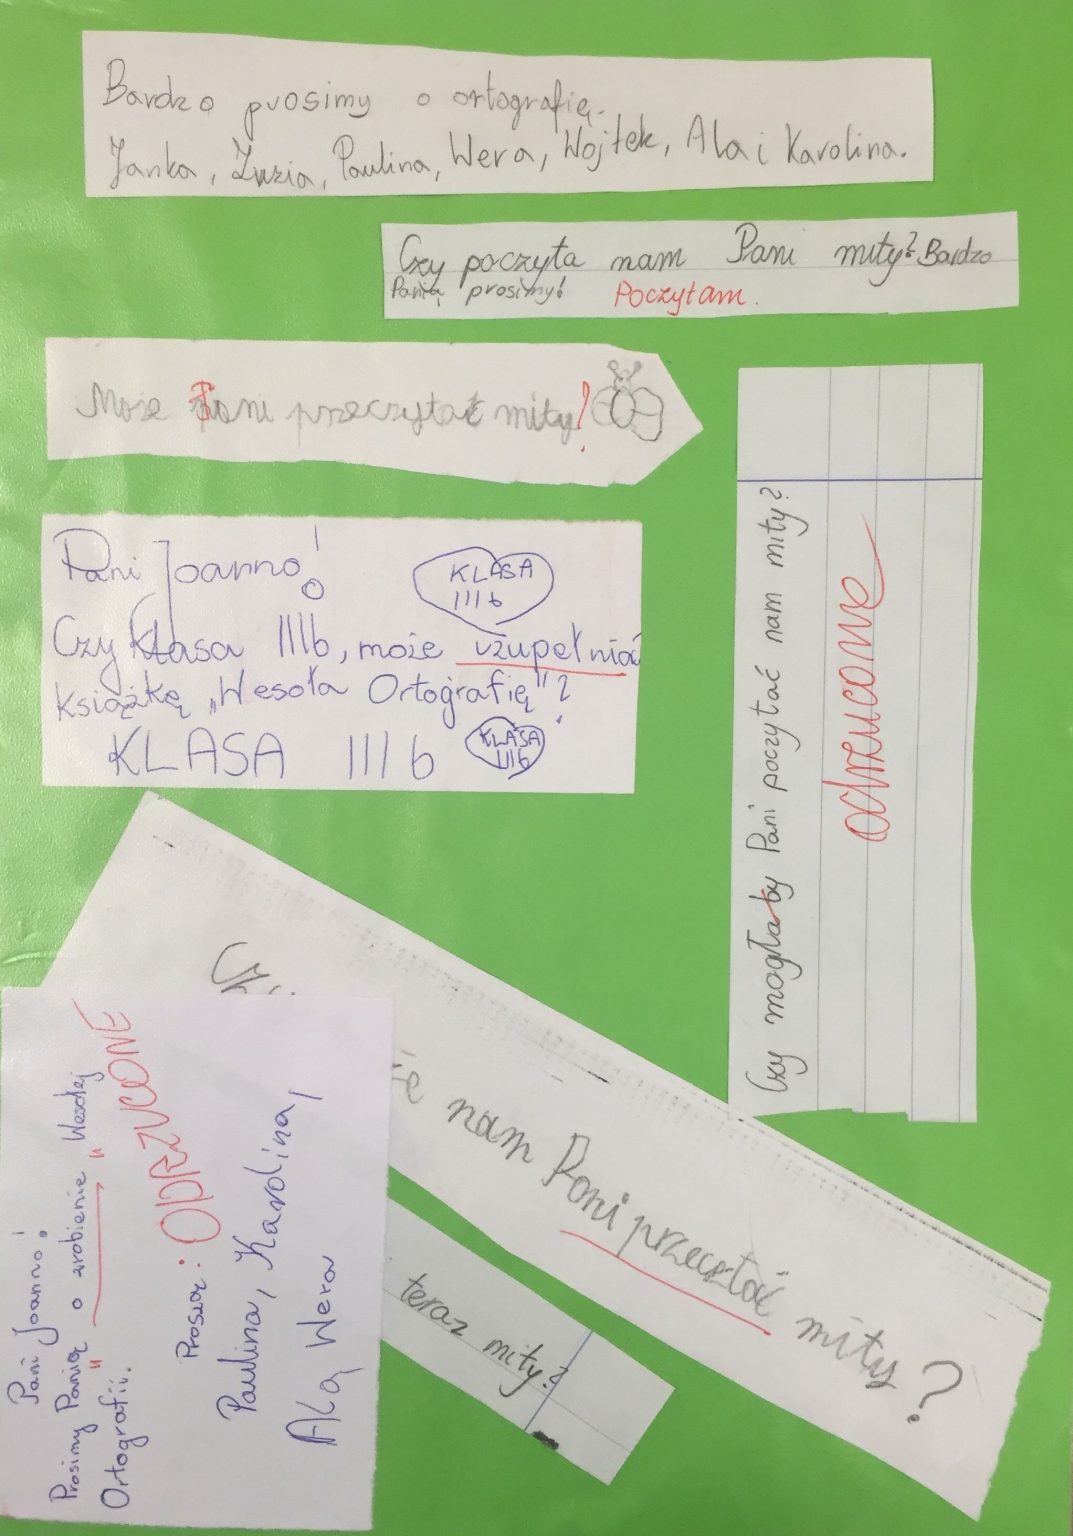 Bardzo prosimy o ortografię.
Janka, Zuzia, Paulina, Wera, Wojtek, Ala i Karolina.
Czy poczyta nam Pani mity? Bardzo
Panią prosimy! Poczytam.
Może Pani przeczytać mity?
Pani Joanno!
KLASA
III b
Czy klasa IIIb, może uzupełniać
książkę „Wesoła Ortografię"?
KLASA III b
KLASA
IIIb
Czy mogłaby Pani poczytać nam mity?
odrzucone
nam Pani przecztać mity?
teraz mity?
Pani Joanno!
Prosimy Panią o zrobienie „Wesołej
Ortografii."
Proszą: ODRZUCONE
Paulina, Karolina,
Alą Wera